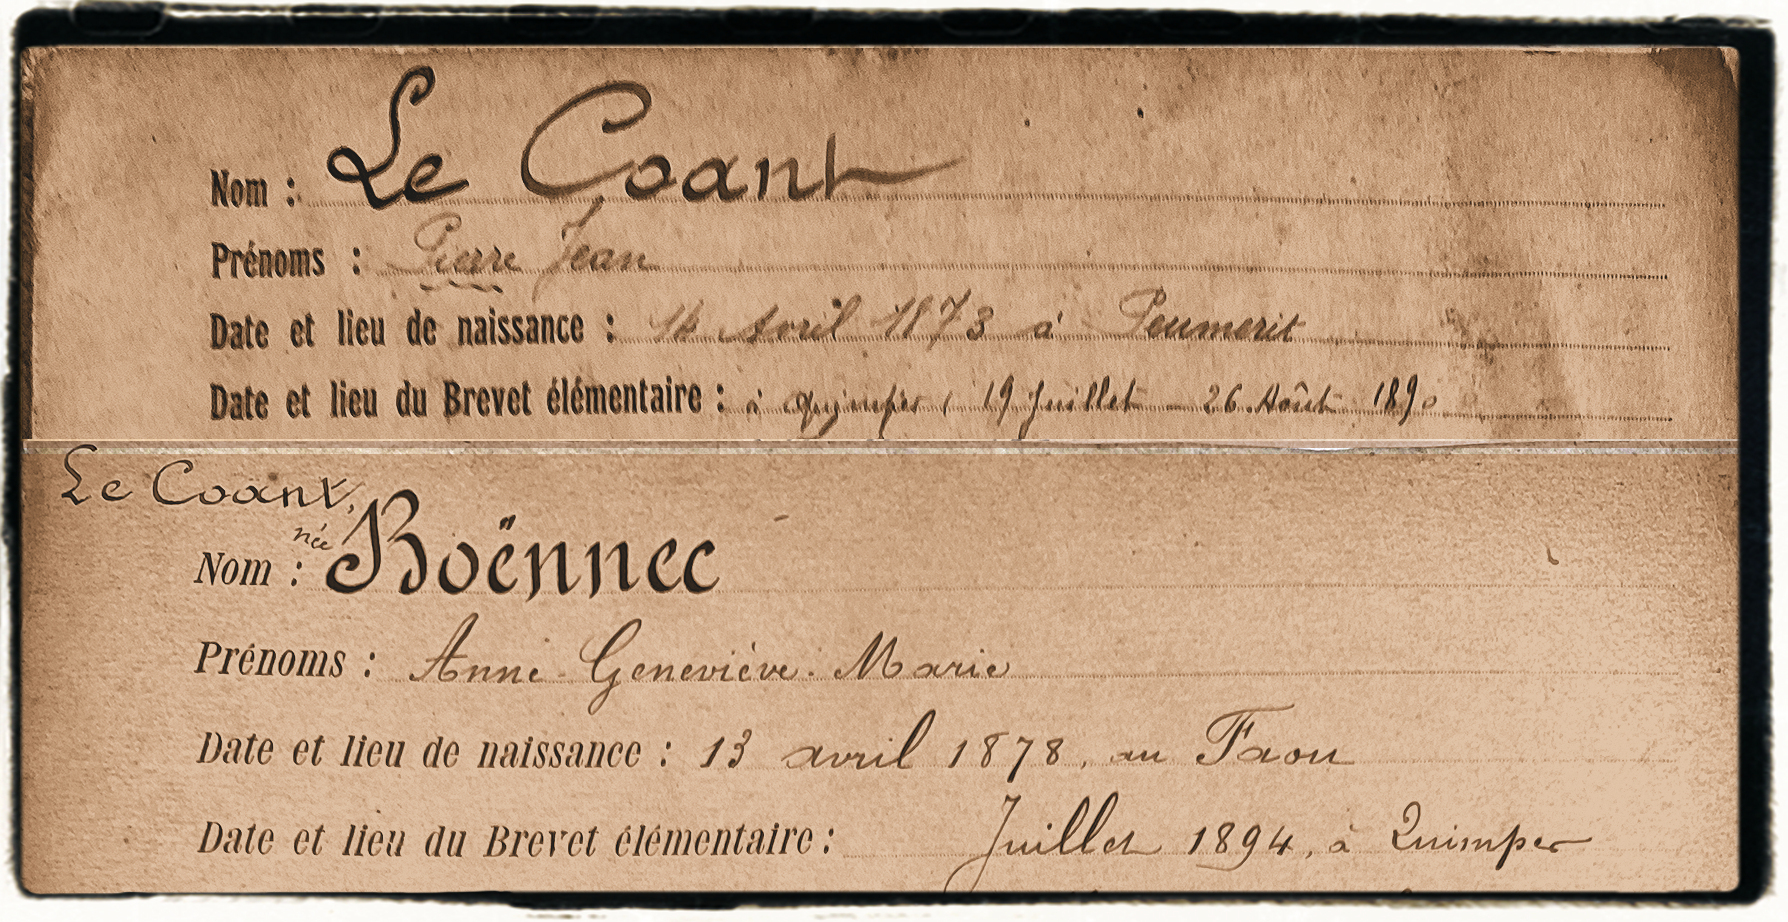 Nom : Le Coant
Prénoms : Pierre Jean
Date et lieu de naissance : 14 Avril 1873 à Peumerit
Date et lieu du Brevet élémentaire : à Quimper, 19 Juillet - 26 Août 1890
Le Coant,
née
Nom : Boënnec
Prénoms : Anne - Geneviève - Marie
Date et lieu de naissance : 13 avril 1878, au Faou
Date et lieu du Brevet élémentaire : Juillet 1894, à Quimper